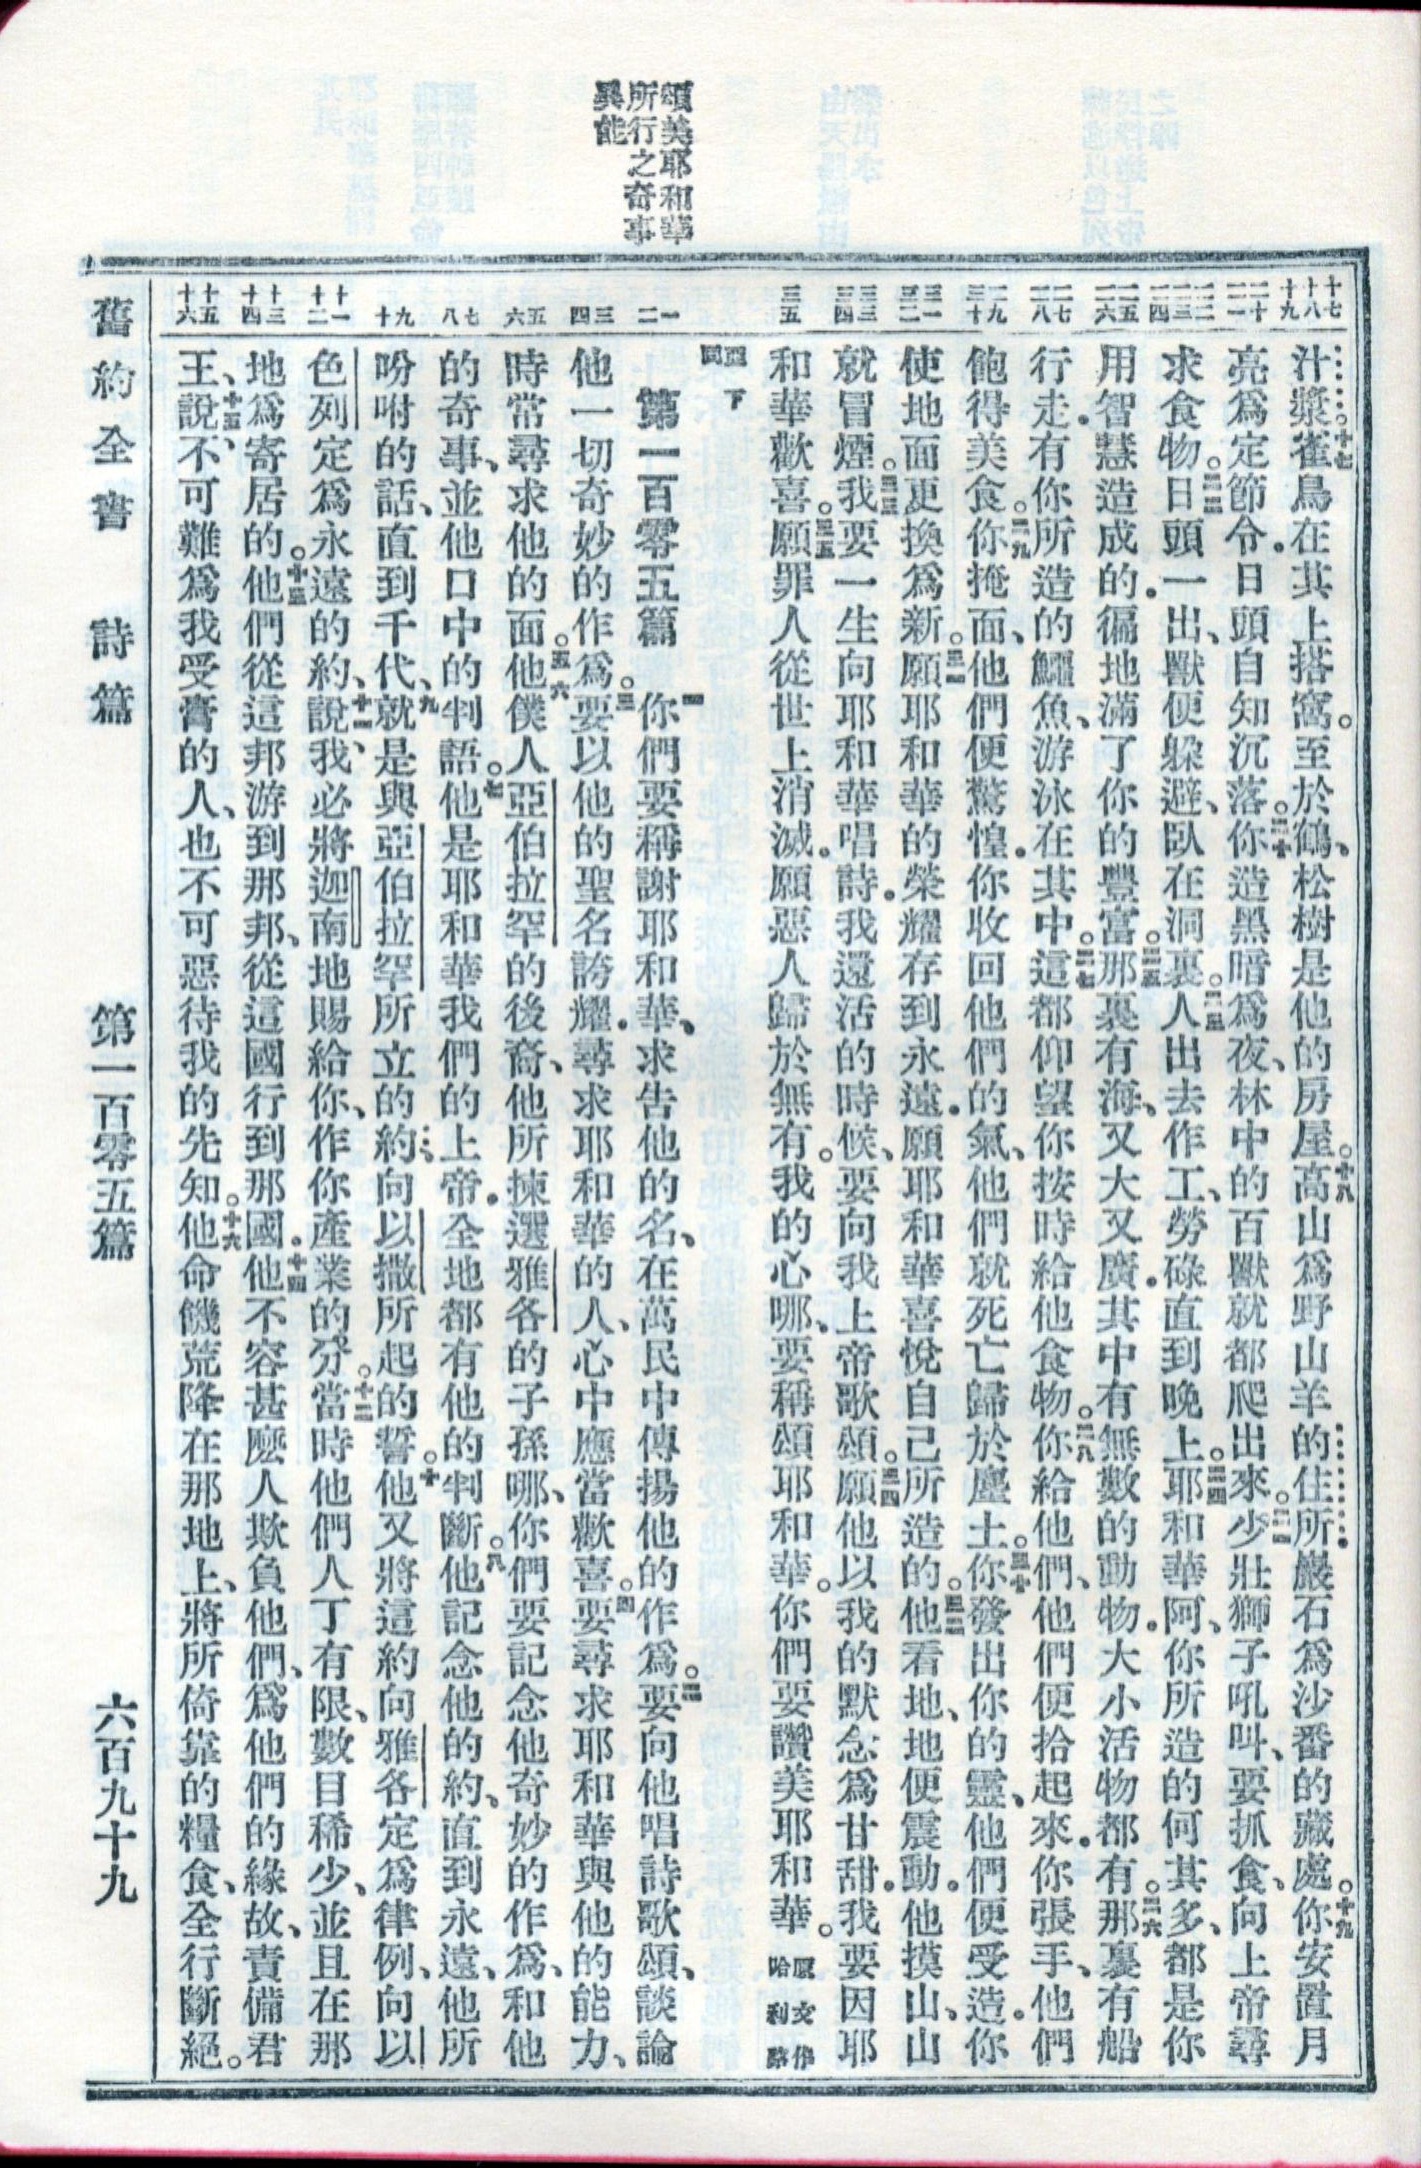 頌美耶和華
所行之奇事
異能
十七
十八
十九
汁漿。十七雀鳥在其上搭窩。至於鶴、松樹是他的房屋。十八高山爲野山羊的住所巖石爲沙番的藏處。十九你安置月
二十
二一
亮爲定節令.日頭自知沉落。二十你造黑暗爲夜、林中的百獸就都爬出來。二一少壯獅子吼叫、要抓食、向上帝尋
二二
二三
二四
求食物。二二日頭一出、獸便躲避、臥在洞裏。二三人出去作工、勞碌直到晚上。二四耶和華阿、你所造的何其多、都是你
二五
二六
用智慧造成的.徧地滿了你的豐富。二五那裏有海、又大又廣.其中有無數的動物.大小活物都有。二六那裏有船
二七
二八
行走.有你所造的鱷魚、游泳在其中。二七這都仰望你按時給他食物。二八你給他們、他們便拾起來.你張手、他們
二九
三十
飽得美食。二九你掩面、他們便驚惶.你收回他們的氣、他們就死亡歸於塵土。三十你發出你的靈、他們便受造.你
三一
三二
使地面更換爲新。三一願耶和華的榮耀存到永遠.願耶和華喜悅自己所造的。三二他看地、地便震動.他摸山、山
三三
三四
就冒煙。三三我要一生向耶和華唱詩.我還活的時候、要向我上帝歌頌。三四願他以我的默念爲甘甜.我要因耶
三五
和華歡喜。三五願罪人從世上消滅.願惡人歸於無有。我的心哪、要稱頌耶和華。你們要讚美耶和華。原文作哈利路
亞下同
一
二
第一百零五篇 一你們要稱謝耶和華、求告他的名、在萬民中傳揚他的作爲。二要向他唱詩歌頌、談論
三
四
他一切奇妙的作爲。三要以他的聖名誇耀.尋求耶和華的人、心中應當歡喜。四要尋求耶和華與他的能力、
五
六
時常尋求他的面。五六他僕人亞伯拉罕的後裔、他所揀選雅各的子孫哪、你們要記念他奇妙的作爲、和他
七
八
的奇事、並他口中的判語。七他是耶和華我們的上帝.全地都有他的判斷。八他記念他的約、直到永遠、他所
九
十
吩咐的話、直到千代、九就是與亞伯拉罕所立的約向以撒所起的誓。十他又將這約向雅各定爲律例、向以
十一
十二
色列定爲永遠的約、十一說、我必將迦南地賜給你、作你產業的分。十二當時他們人丁有限、數目稀少、並且在那
十三
十四
地爲寄居的。十三他們從這邦游到那邦、從這國行到那國.十四他不容甚麼人欺負他們、爲他們的緣故、責備君
十五
十六
王、十五說、不可難爲我受膏的人、也不可惡待我的先知。十六他命饑荒降在那地上、將所倚靠的糧食、全行斷絕。
舊約全書 詩篇 第一百零五篇 六百九十九